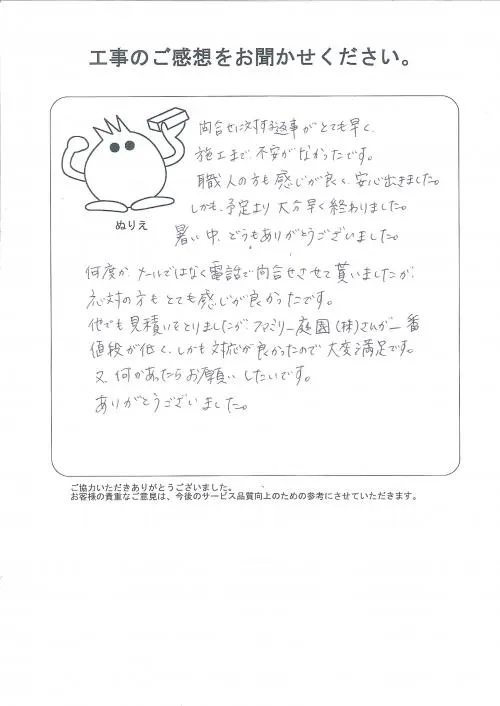 工事のご感想をお聞かせください。
問合せに対する返事がとても早く、
施工まで不安がなかったです。
職人の方も感じが良く、安心出きました。
しかも、予定より大分早く終わりました。
暑い中、どうもありがとうございました。
ぬりえ
何度か、メールではなく電話で問合せさせて貰いましたが、
応対の方もとても感じが良かったです。
他でも見積いをとりましたが、ファミリー庭園(株)さんが一番
値段が低く、しかも対応が良かったので大変満足です。
又、何かあったらお願いしたいです。
ありがとうございました。
ご協力いただきありがとうございました。
お客様の貴重なご意見は、今後のサービス品質向上のための参考にさせていただきます。